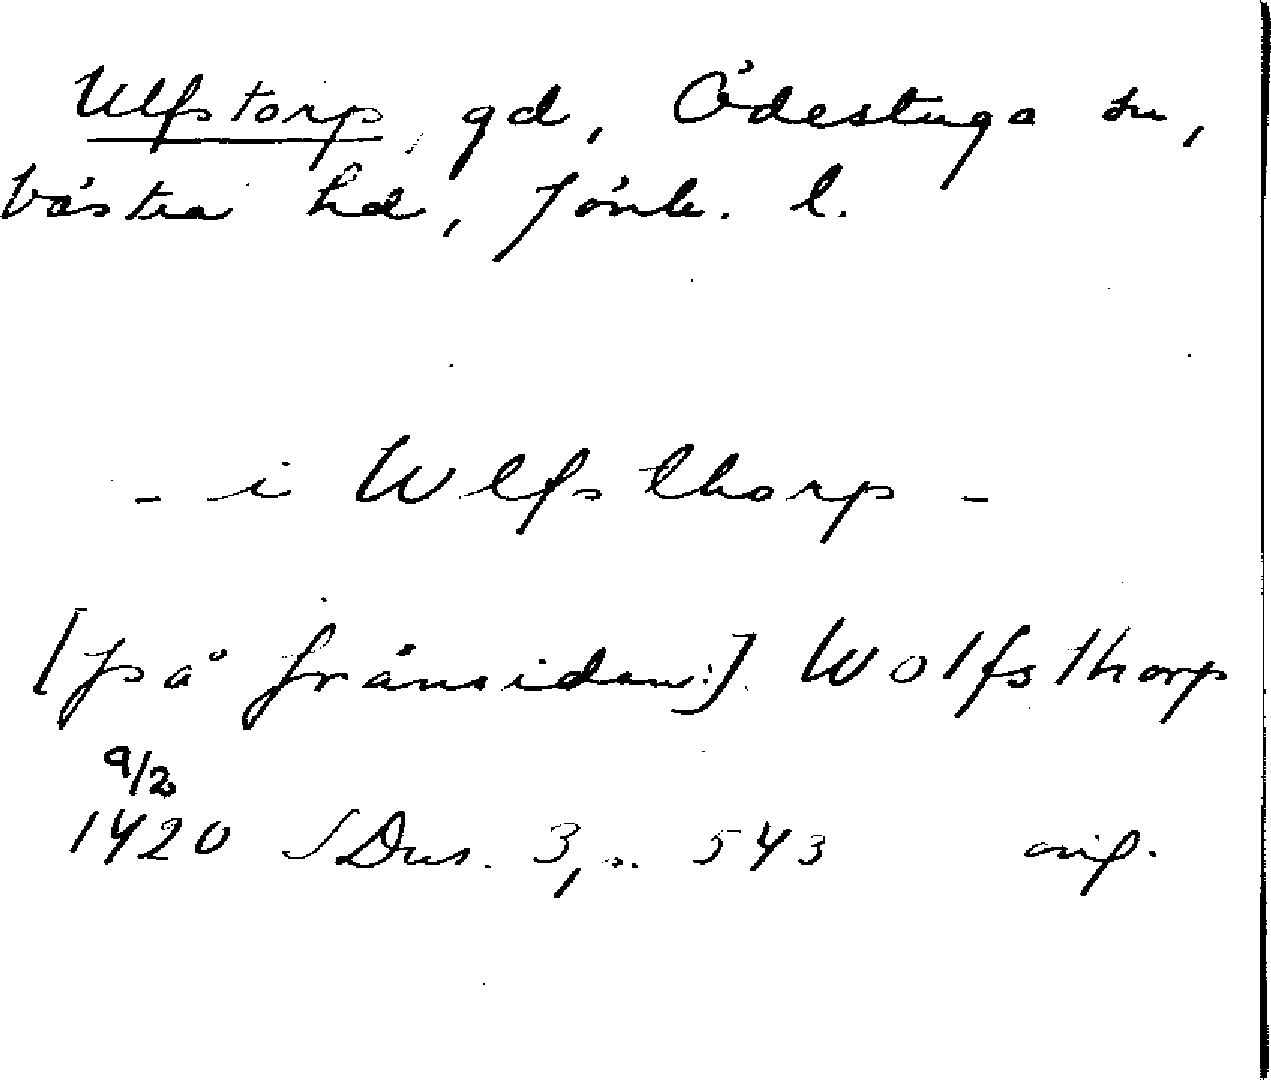 Ulfstorp, gd, Ödestuga sn,
Västra hd, Jönk. l.
- i Wlfsthorp -
[på frånsidan:] Wolfsthorp
9/2
1420 SDns. 3, s. 543 orig.